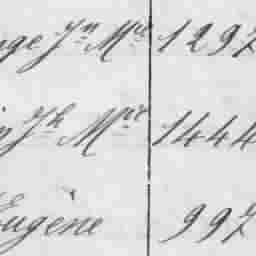 nge Jn Mie 1297
in Jh Mie 1444
Eugène 997